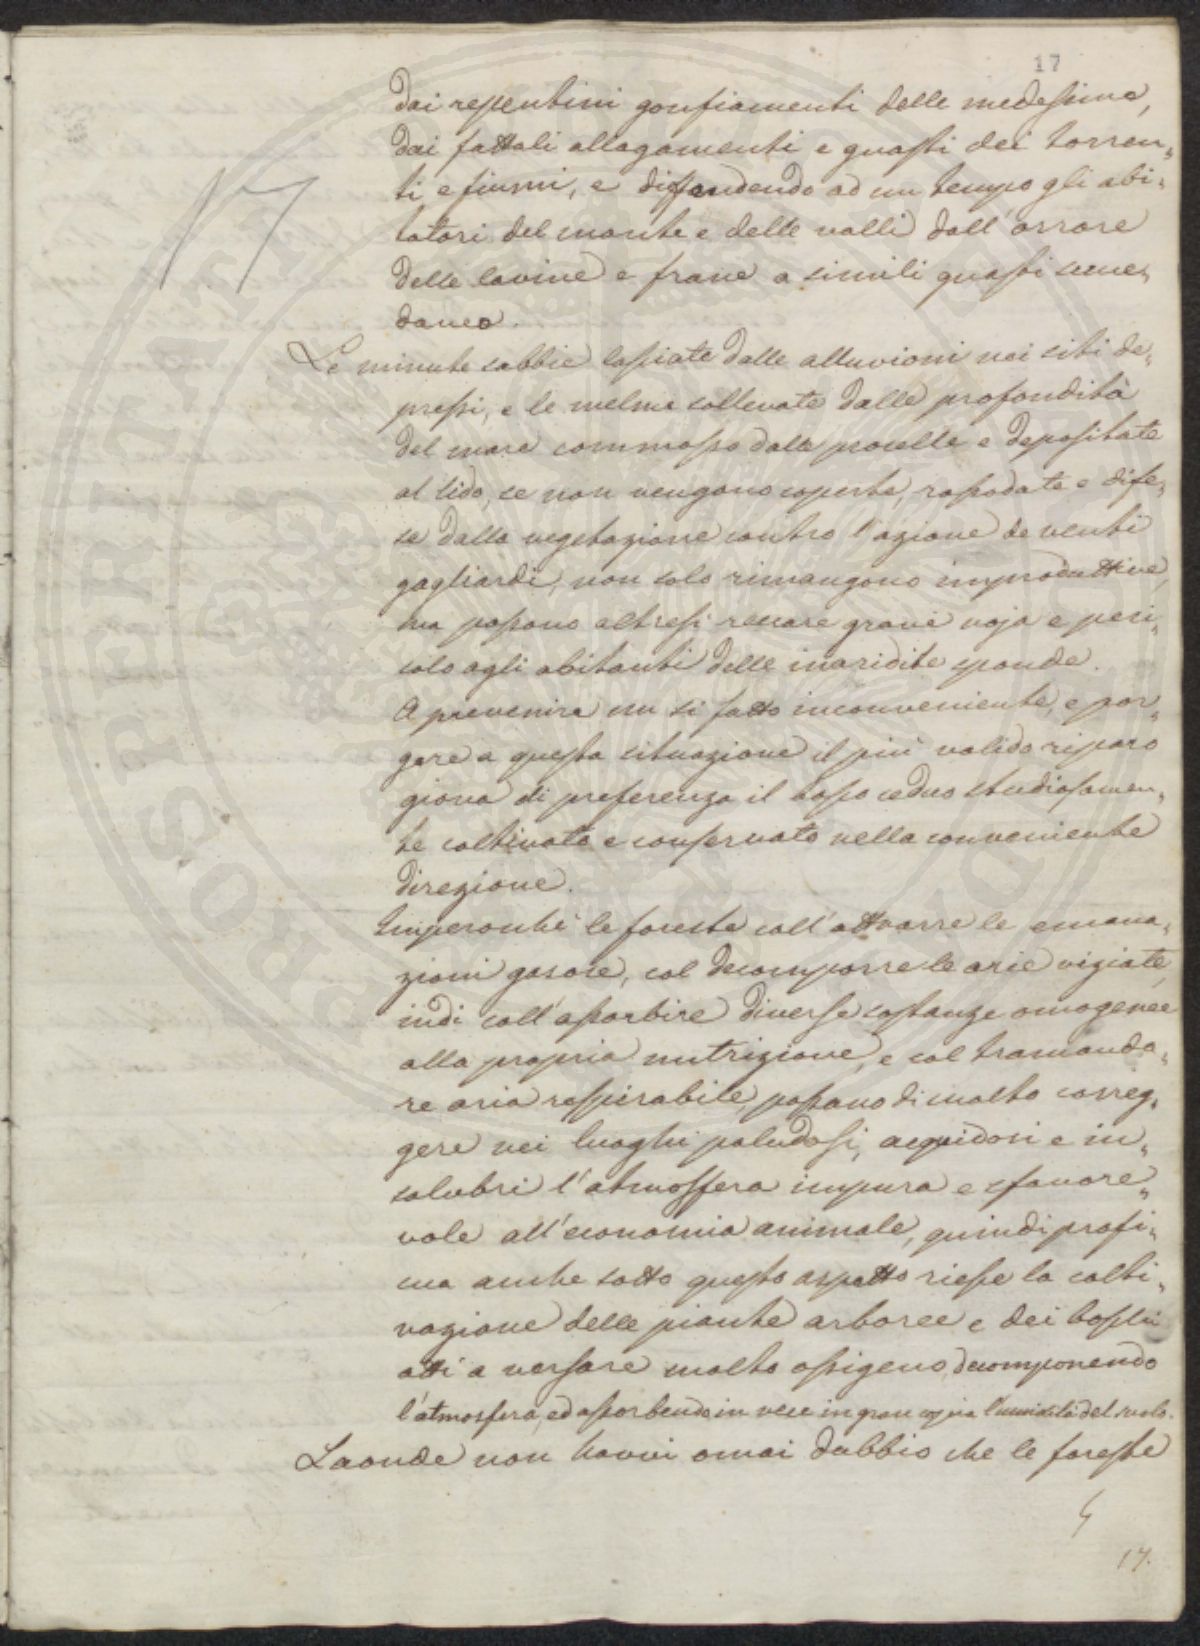 17
dai repentini gonfiamenti delle medesime,
dai fattali allagamenti e guasti dei torren„
ti e fiumi, e diffendendo ad un tempo gli abi„
tatori del monte e delle valli dall'orrore
delle lavine e frane a simili guasti succe„
danee.
17
Le minute sabbie lasciate dalle alluvioni nei siti de„
pressi, e le melme sollevate dalle profondità
del mare commosso dalle procelle e depositate
al lido, se non vengono coperte, rassodate e dife„
se dalla vegetazione contro l'azione de venti
gagliardi, non solo rimangono improduttive,
ma possono altresi reccare grave noja e peri„
colo agli abitanti delle inaridite sponde.
A prevenire un si fatto inconveniente, e por„
gere a questa situazione il più valido riparo
giova di preferenza il bosco ceduo studiosamen„
te coltivato e conservato nella conveniente
direzione.
Imperonchè le foreste coll'attrarre le emana„
zioni gasose, col decomporre le arie viziate,
indi coll'assorbire diverse sostanze omogenee
alla propria nutrizione, e col tramanda„
re aria respirabile, possono di molto correg„
gere nei luoghi paludosi, acquidosi e in„
salubri l'atmosfera impura e sfavore„
vole all'economia animale, quindi profi„
cua anche sotto questo aspetto riesce la colti„
vazione delle piante arboree e dei boschi
atti a versare molto ossigeno, decomponendo
l'atmosfera, ed assorbendo in vece in gran copia l'umidità del suolo.
Laonde non havvi omai dubbio che le foreste
17.
PROSPERINATE